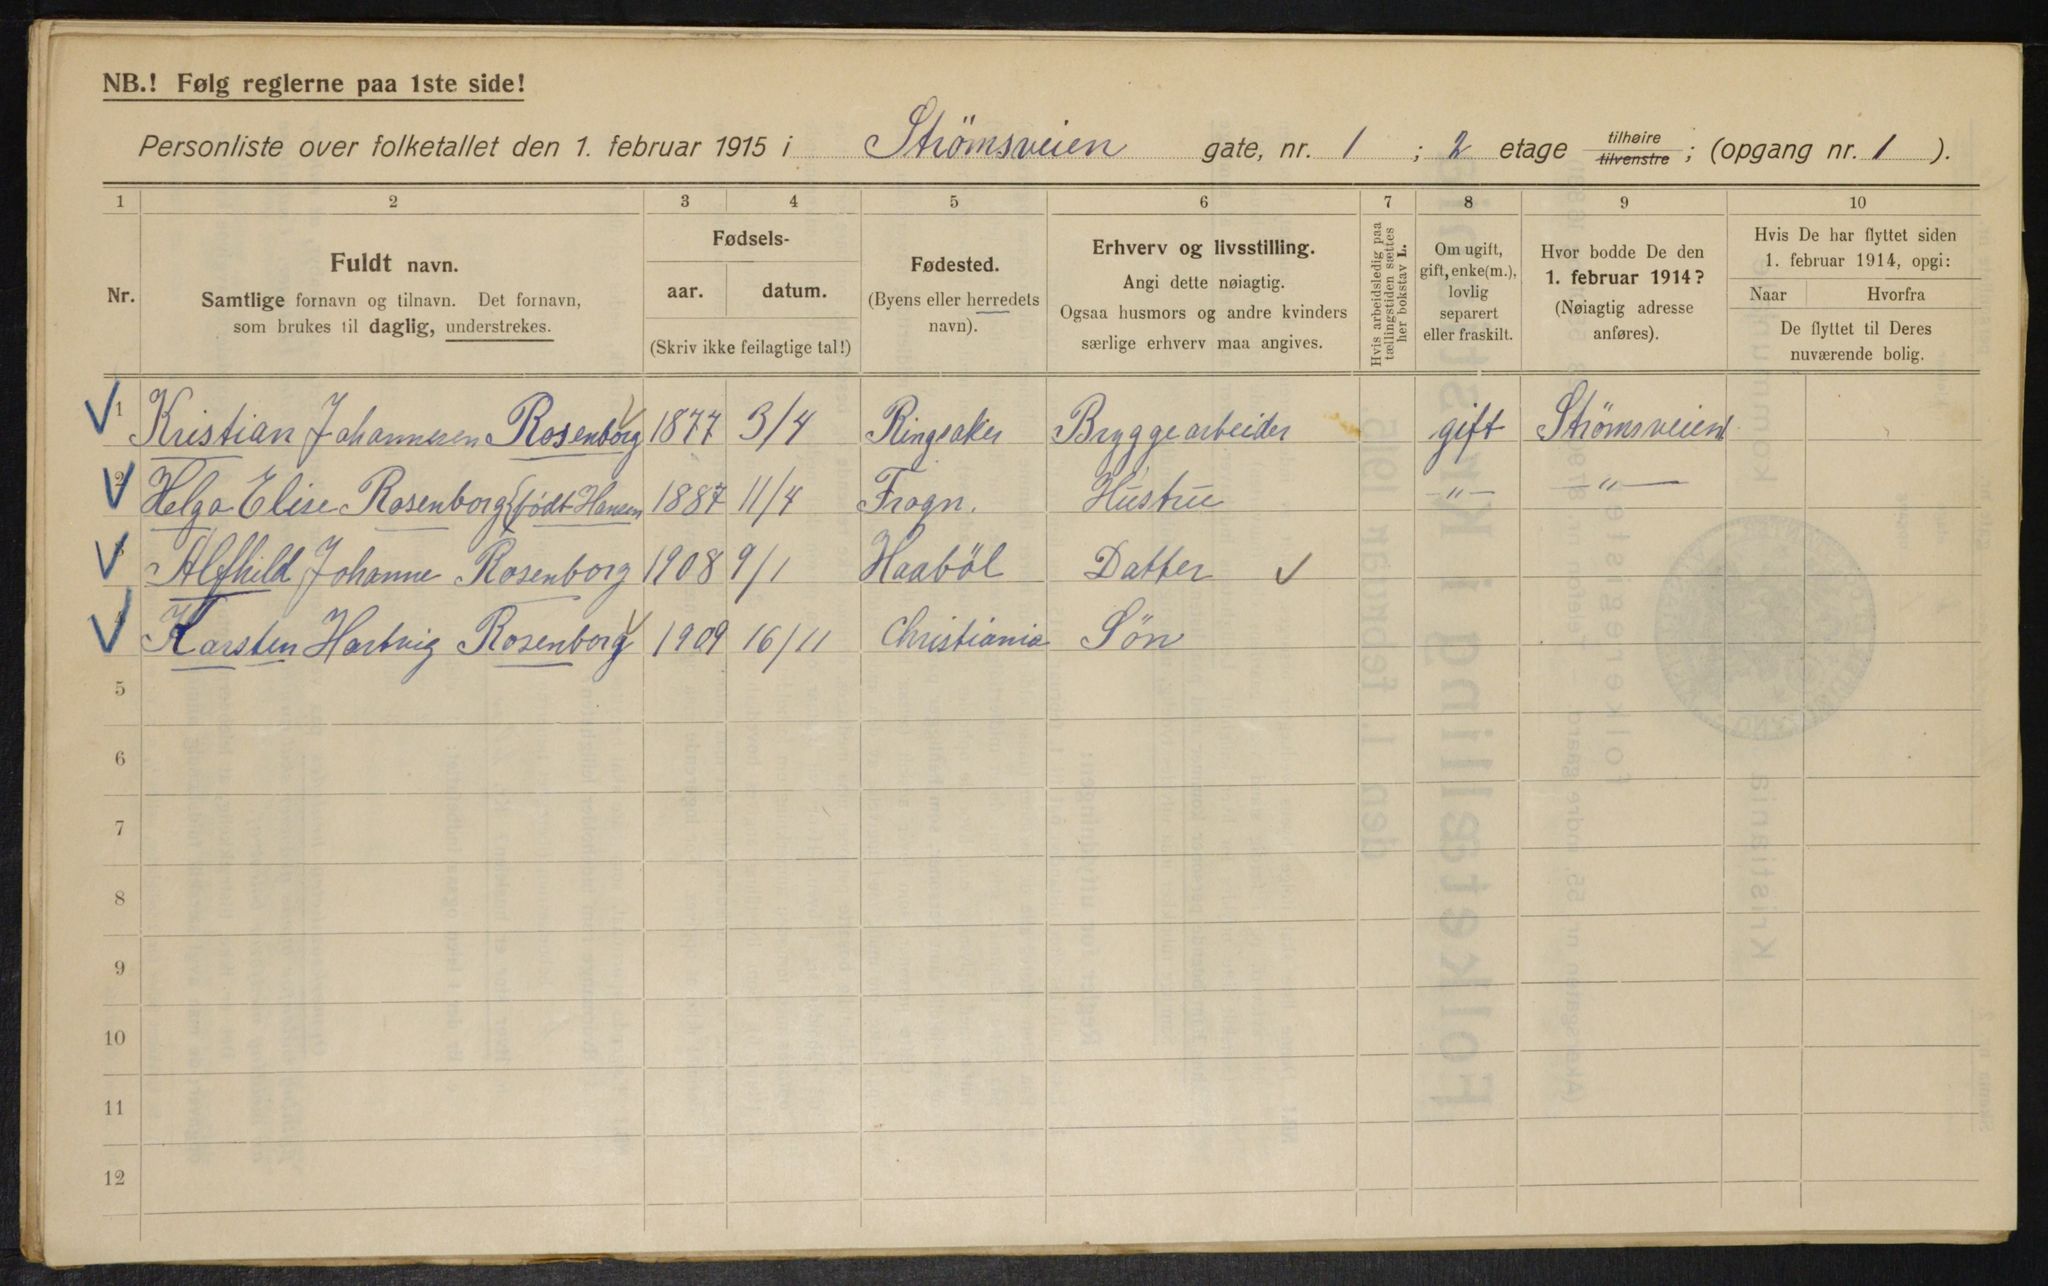 NB.! Følg reglerne paa 1ste side!
Personliste over folketallet den 1. februar 1915 i Strømsveien gate, nr. 1 ; 2 etage tilhøire tilvenstre ; (opgang nr. 1 ).
1 2 3 4 5 6 7 8 9 10
Nr.
Fuldt navn.
Samtlige fornavn og tilnavn. Det fornavn,
som brukes til daglig, understrekes.
Fødsels-
aar. datum.
(Skriv ikke feilagtige tal!)
Fødested.
(Byens eller herredets
navn).
Erhverv og livsstilling.
Angi dette nøiagtig.
Ogsaa husmors og andre kvinders
særlige erhverv maa angives.
Hvis arbeidsledig paa
tællingstiden sættes
her bokstav L.
Om ugift,
gift, enke(m.),
lovlig
separert
eller fraskilt.
Hvor bodde De den
1. februar 1914?
(Nøiagtig adresse
anføres).
Hvis De har flyttet siden
1. februar 1914, opgi:
Naar Hvorfra
De flyttet til Deres
nuværende bolig.
1 Kristian Johannesen Rosenborg 1877 3/4 Ringsaker Bryggearbeider gift Strømsveien 1
2 Helga Elise Rosenborg (født Hansen 1887 11/4 Frogn. Hustru -"- -"-
3 Alfhild Johanne Rosenborg 1908 9/1 Haabøl Datter ✓
4 Karsten Hartvig Rosenborg 1909 16/11 Christiania Søn
5
6
7
8
9
10
11
12